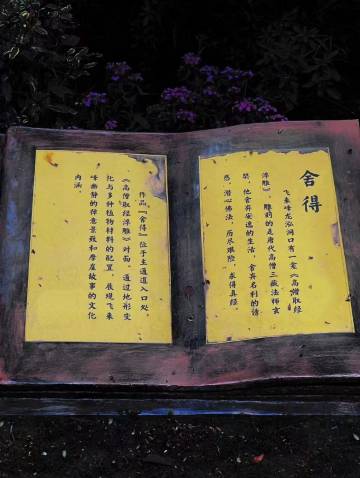 舍得
飞来峰龙泓洞口有一案《高僧取经
浮雕》，雕的是唐代高僧三藏法师玄
奘，他舍弃安逸的生活，舍弃名利的诱
惑，潜心佛法，历尽艰险，求得真经
作品『舍得』位于主通道入口处，
《高僧取经浮雕》对面。通过地形变
化与多种植物材料的配置，展现飞来
峰幽静的禅意景致和摩崖故事的文化
内涵。